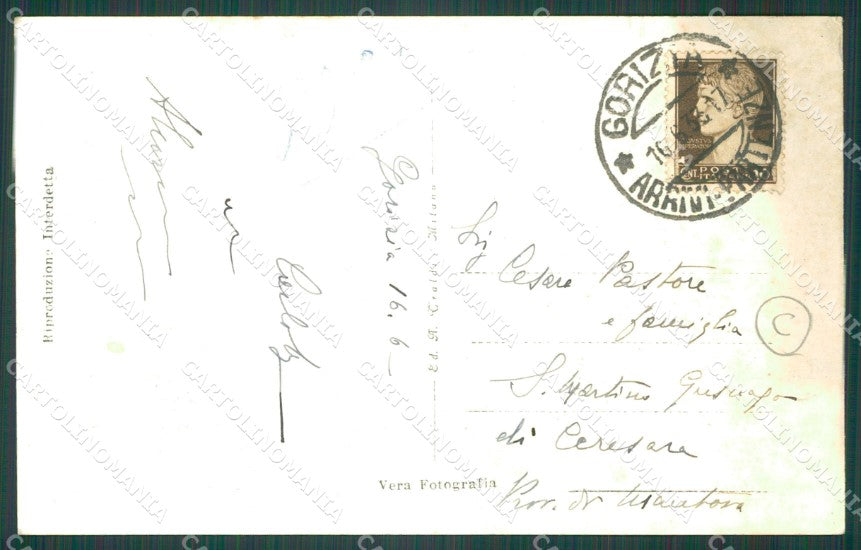 Riproduzione Interdetta
Gorizia 16.6
Carlotta
Ed. A. Traldi - Milano
Vera Fotografia
GORIZIA
ARRIVI-PARTENZE
16.6
POSTE
Sig
Cesare Pastore
e famiglia
S. Martino Gusnago
di Ceresara
Prov. di Mantova
C
CARTOLINOMANIA